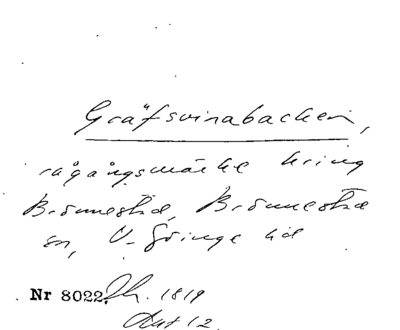 Gräfsvinabacken,
rågångsmärke kring
Brönnestad, Brönnestad
sn, V. Göinge hd
Nr 8022, Lh. 1819
Akt 12.